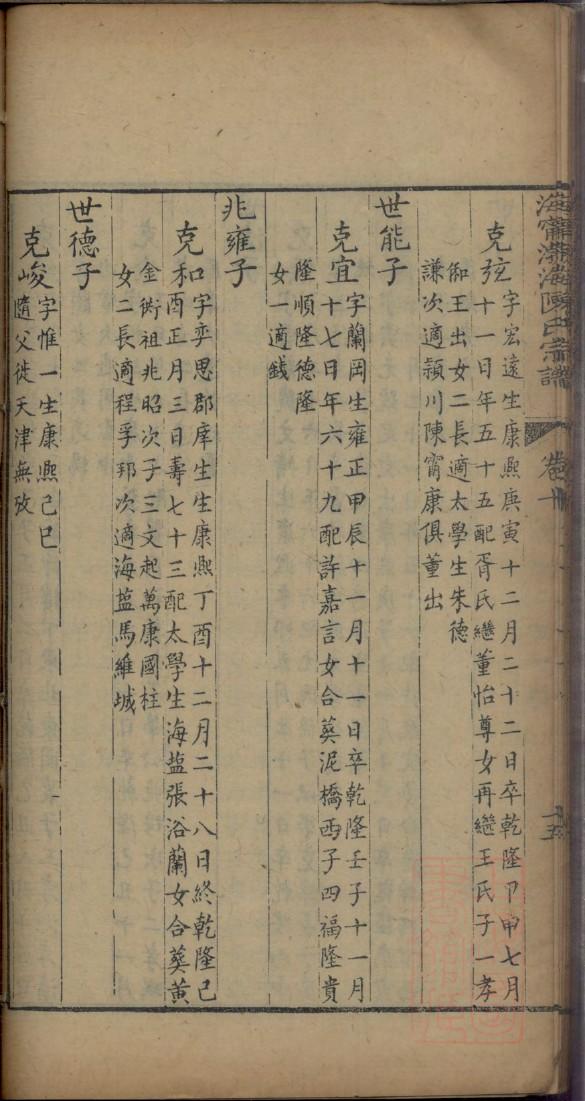 海寧渤海陳氏宗譜
卷十
十五
克弦
字宏遠生康熙庚寅十二月二十二日卒乾隆甲申七月
十一日年五十五配胥氏繼董怡尊女再繼王氏子一孝
王出女二長適太學生朱德
謙次適潁川陳甯康俱董出
世能子
克宜
字蘭岡生雍正甲辰十一月十一日卒乾隆壬子十一月
十七日年六十九配許嘉言女合葬泥橋西子四福隆貴
隆順隆德隆
女一適錢
兆雍子
克和
字奕思郡庠生生康熙丁酉十二月二十八日終乾隆己
酉正月三日壽七十三配太學生海盐張浴蘭女合葬黄
金衖祖兆昭次子三文起萬康國柱
女二長適程孚邦次適海盐馬維城
世德子
克峻
字惟一生康熙己巳
隨父徙天津無攷